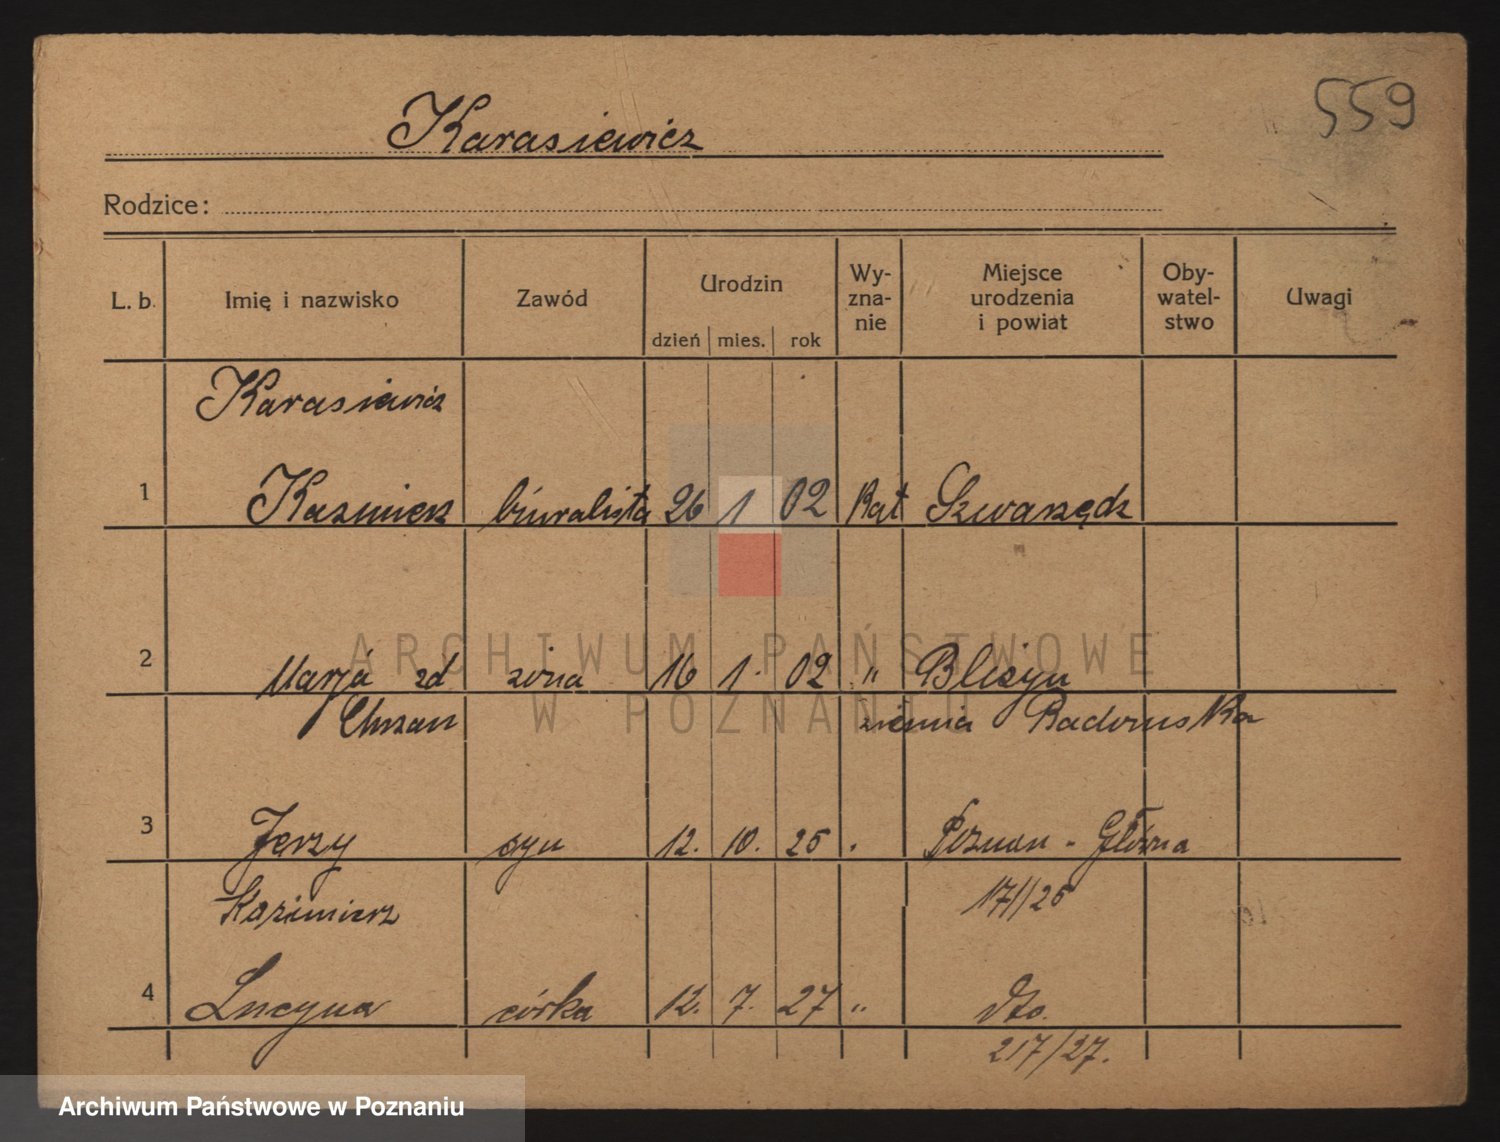 559
Karasiewicz
Rodzice:
L. b. Imię i nazwisko Zawód Urodzin dzień mies. rok Wy-zna-nie Miejsce urodzenia i powiat Oby-watel-stwo Uwagi
Karasiewicz
1 Kazmierz biuralista 26 1 02 Kat Szwarzędz
2 Marja zd żona 16 1. 02 " Blizyn
Chrzan ziemia Radomska
3 Jerzy syn 12. 10. 25 " Poznan - Główna
Kazimierz 171/25
4 Lucyna córka 12. 7. 27 " dto.
217/27.
ARCHIWUM PAŃSTWOWE
W POZNANIU
Archiwum Państwowe w Poznaniu